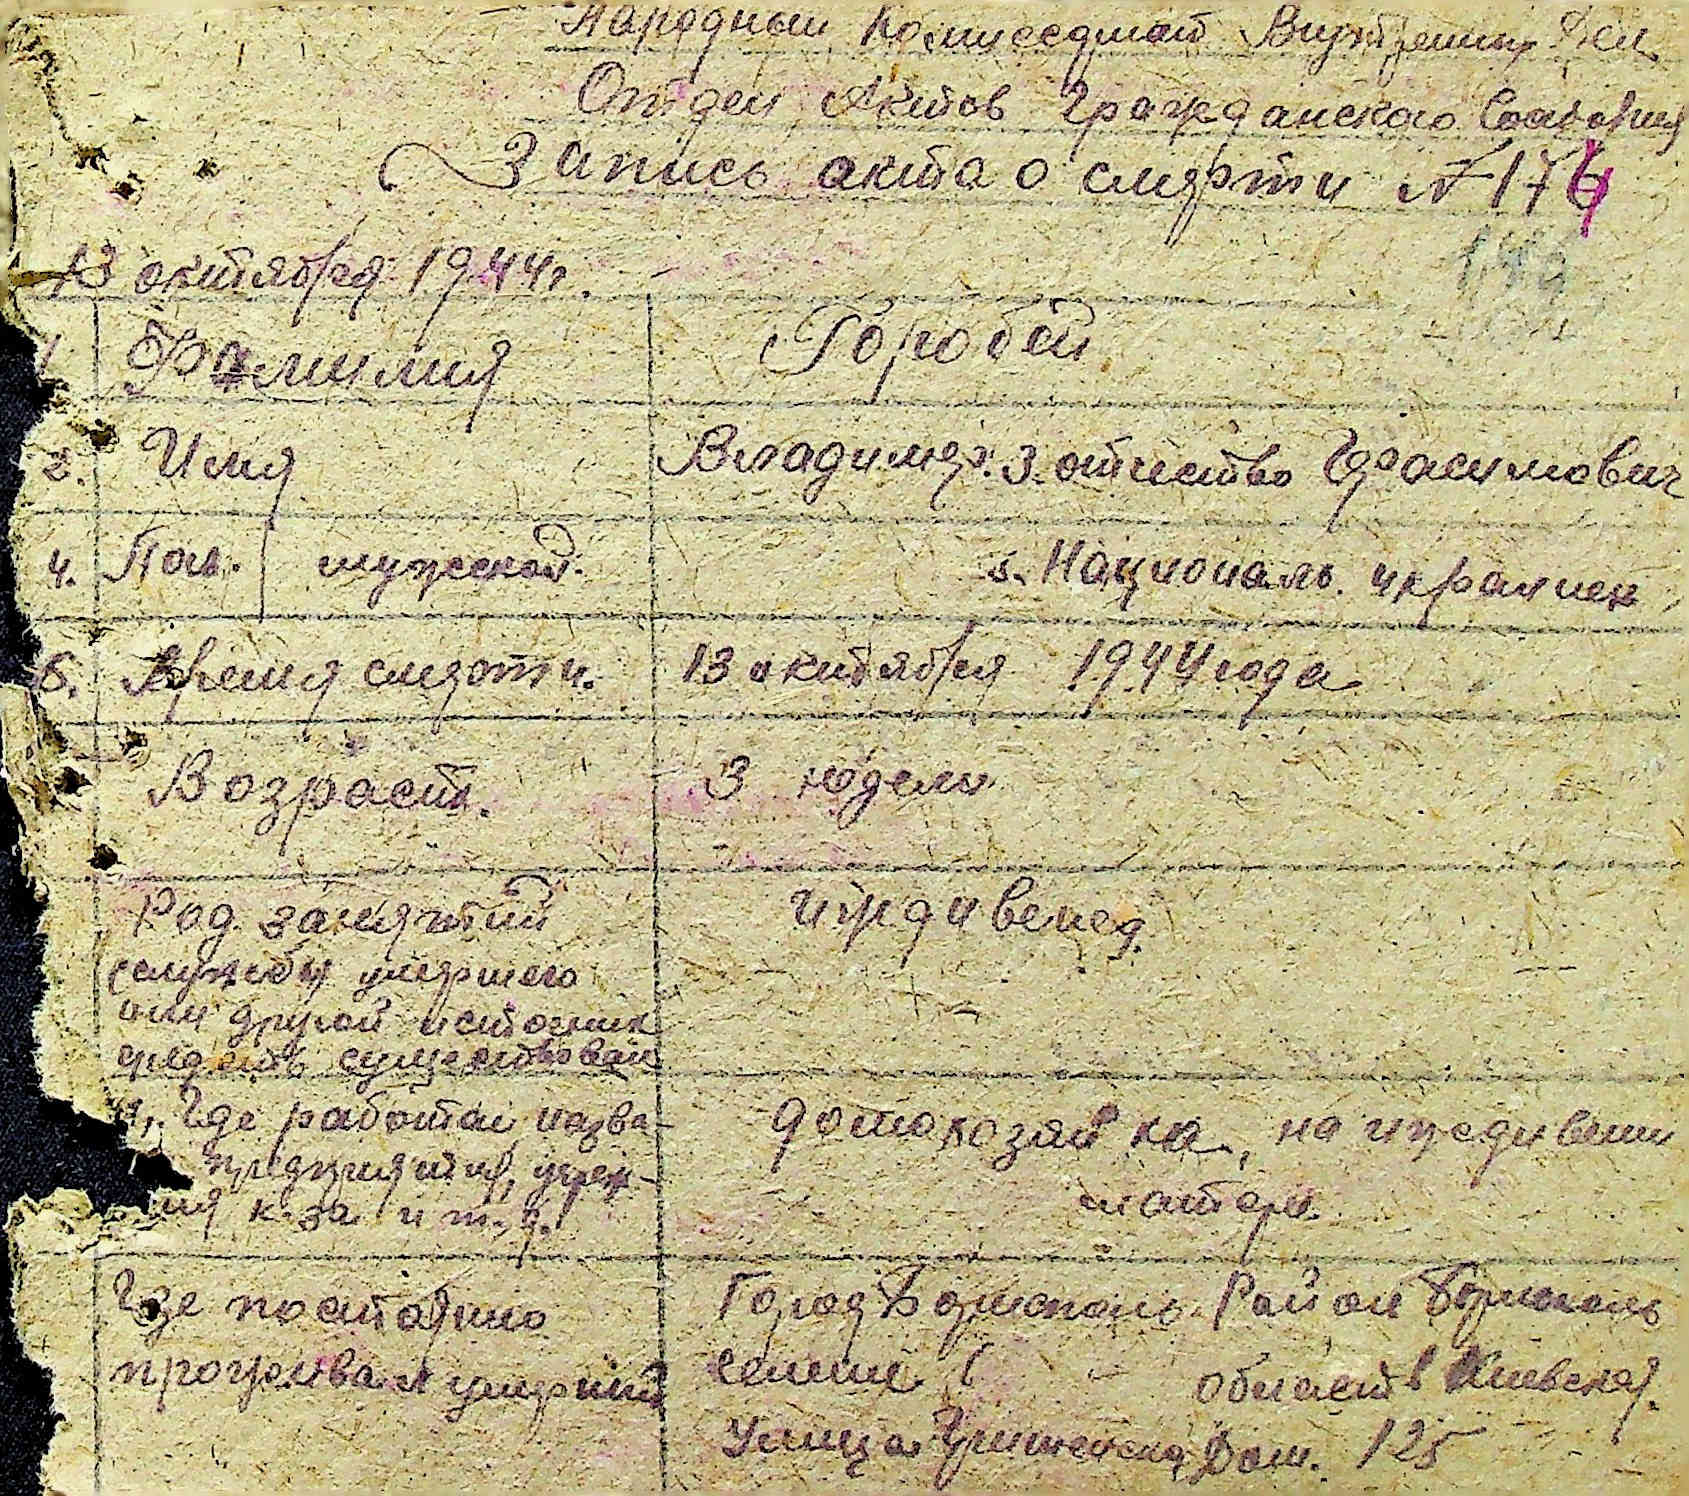 Народный Комиссариат Внутренних Дел
Отдел Актов Гражданского Состояния
Запись акта о смерти № 176
13 октября 1944 г.
1. Фамилия Горобей
2. Имя Владимер. 3. отчество Герасимович
4. Пол. мужской. 5. Националь. украинец
6. Время смерти. 13 октября 1944 года
Возраст. 3 недели
Род занятий иждивенец
службы умершего
или другой источник
существован
Где работал назва-
предприятия, учреж-
ния к-за и т.д.
домохозяйка, на иждивении
матери.
Где постоянно
проживал умерший
Город Борисполь Район Борисполь
селение область Киевская.
Улица Дом. 125